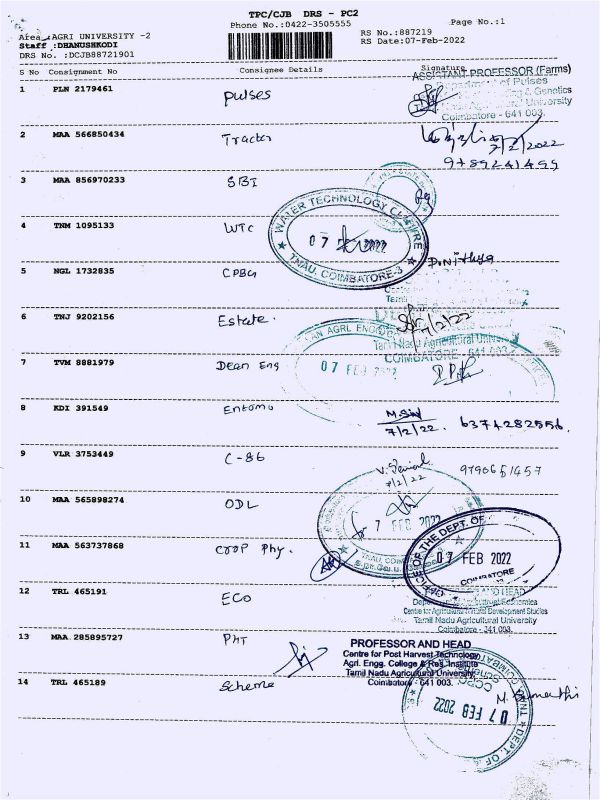 TPC/CJB DRS - PC2
Phone No.:0422-3505555
Page No.:1
Area :AGRI UNIVERSITY -2
Staff :DHANUSHKODI
DRS No. :DCJB88721901
RS No.:887219
RS Date:07-Feb-2022
S No Consignment No Consignee Details Signature
ASSISTANT PROFESSOR (Farms)
1 PLN 2179461 pulses
of Pulses
& Genetics
University
Coimbatore - 641 003.
2 MAA 566850434 Tractor
7/2/2022
9789241499
3 MAA 856970233 SBI
WATER TECHNOLOGY CENTRE
4 TNM 1095133 WTC
07 2022
TNAU. COIMBATORE-3
D.Nithya
5 NGL 1732835 CPBG
Tamil
6 TNJ 9202156 Estate.
7/2/22
AGRL
Tamil Nadu Agricultural
COIMBATORE - 641 003
7 TVM 8881979 Dean Eng
07 FEB 2022
8 KDI 391549 Entomo
7/2/22. 6374282556.
9 VLR 3753449 C-86
7/2/22
10 MAA 565898274 ODL
7 FEB 2022
OFFICE OF THE DEPT. OF
11 MAA 563737868 Crop Phy.
07 FEB 2022
COIMBATORE
12 TRL 465191 ECO
AND HEAD
Economics
Centre for Agricultural Development Studies
Tamil Nadu Agricultural University
Coimbatore - 641 003.
13 MAA 285895727 PHT
PROFESSOR AND HEAD
Centre for Post Harvest Technology
Agri. Engg. College & Res. Institute
Tamil Nadu Agricultural University,
Coimbatore - 641 003.
14 TRL 465189 Scheme
07 FEB 2022
DEPT. OF